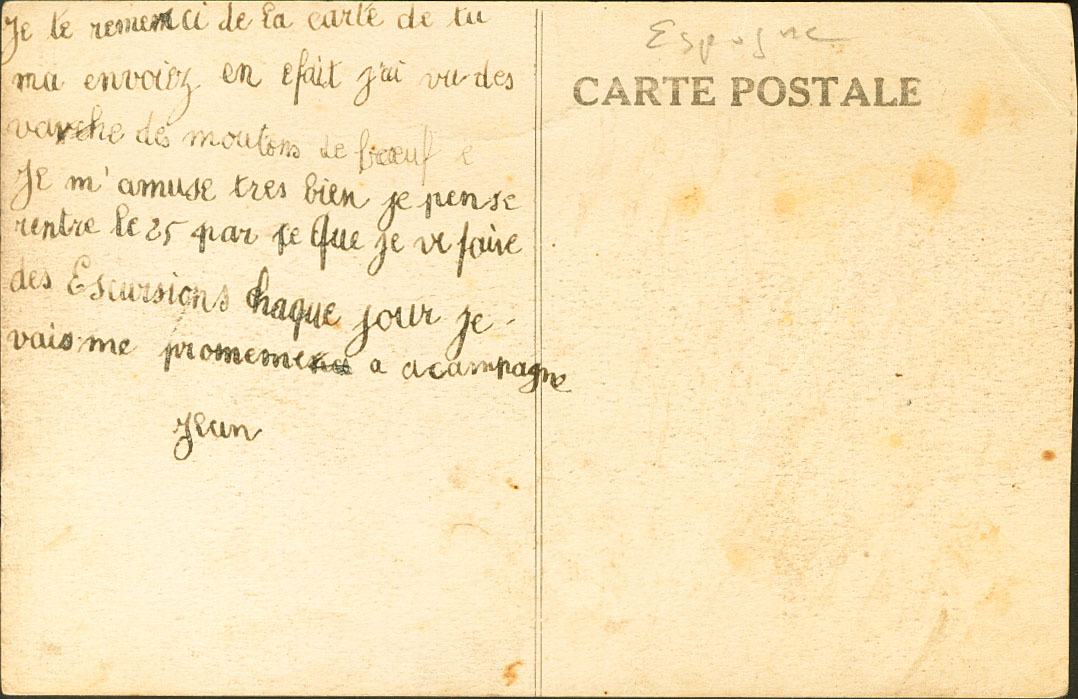 Je te rememci de la carte de tu
ma envoiez en efait j'ai vu des
varche des moutons de bœuf e
Je m'amuse tres bien je pense
rentre le 25 par ce que je ve faire
des Escursions haque jour je
vais me promemener a acampagne
Jean
Espagne
CARTE POSTALE